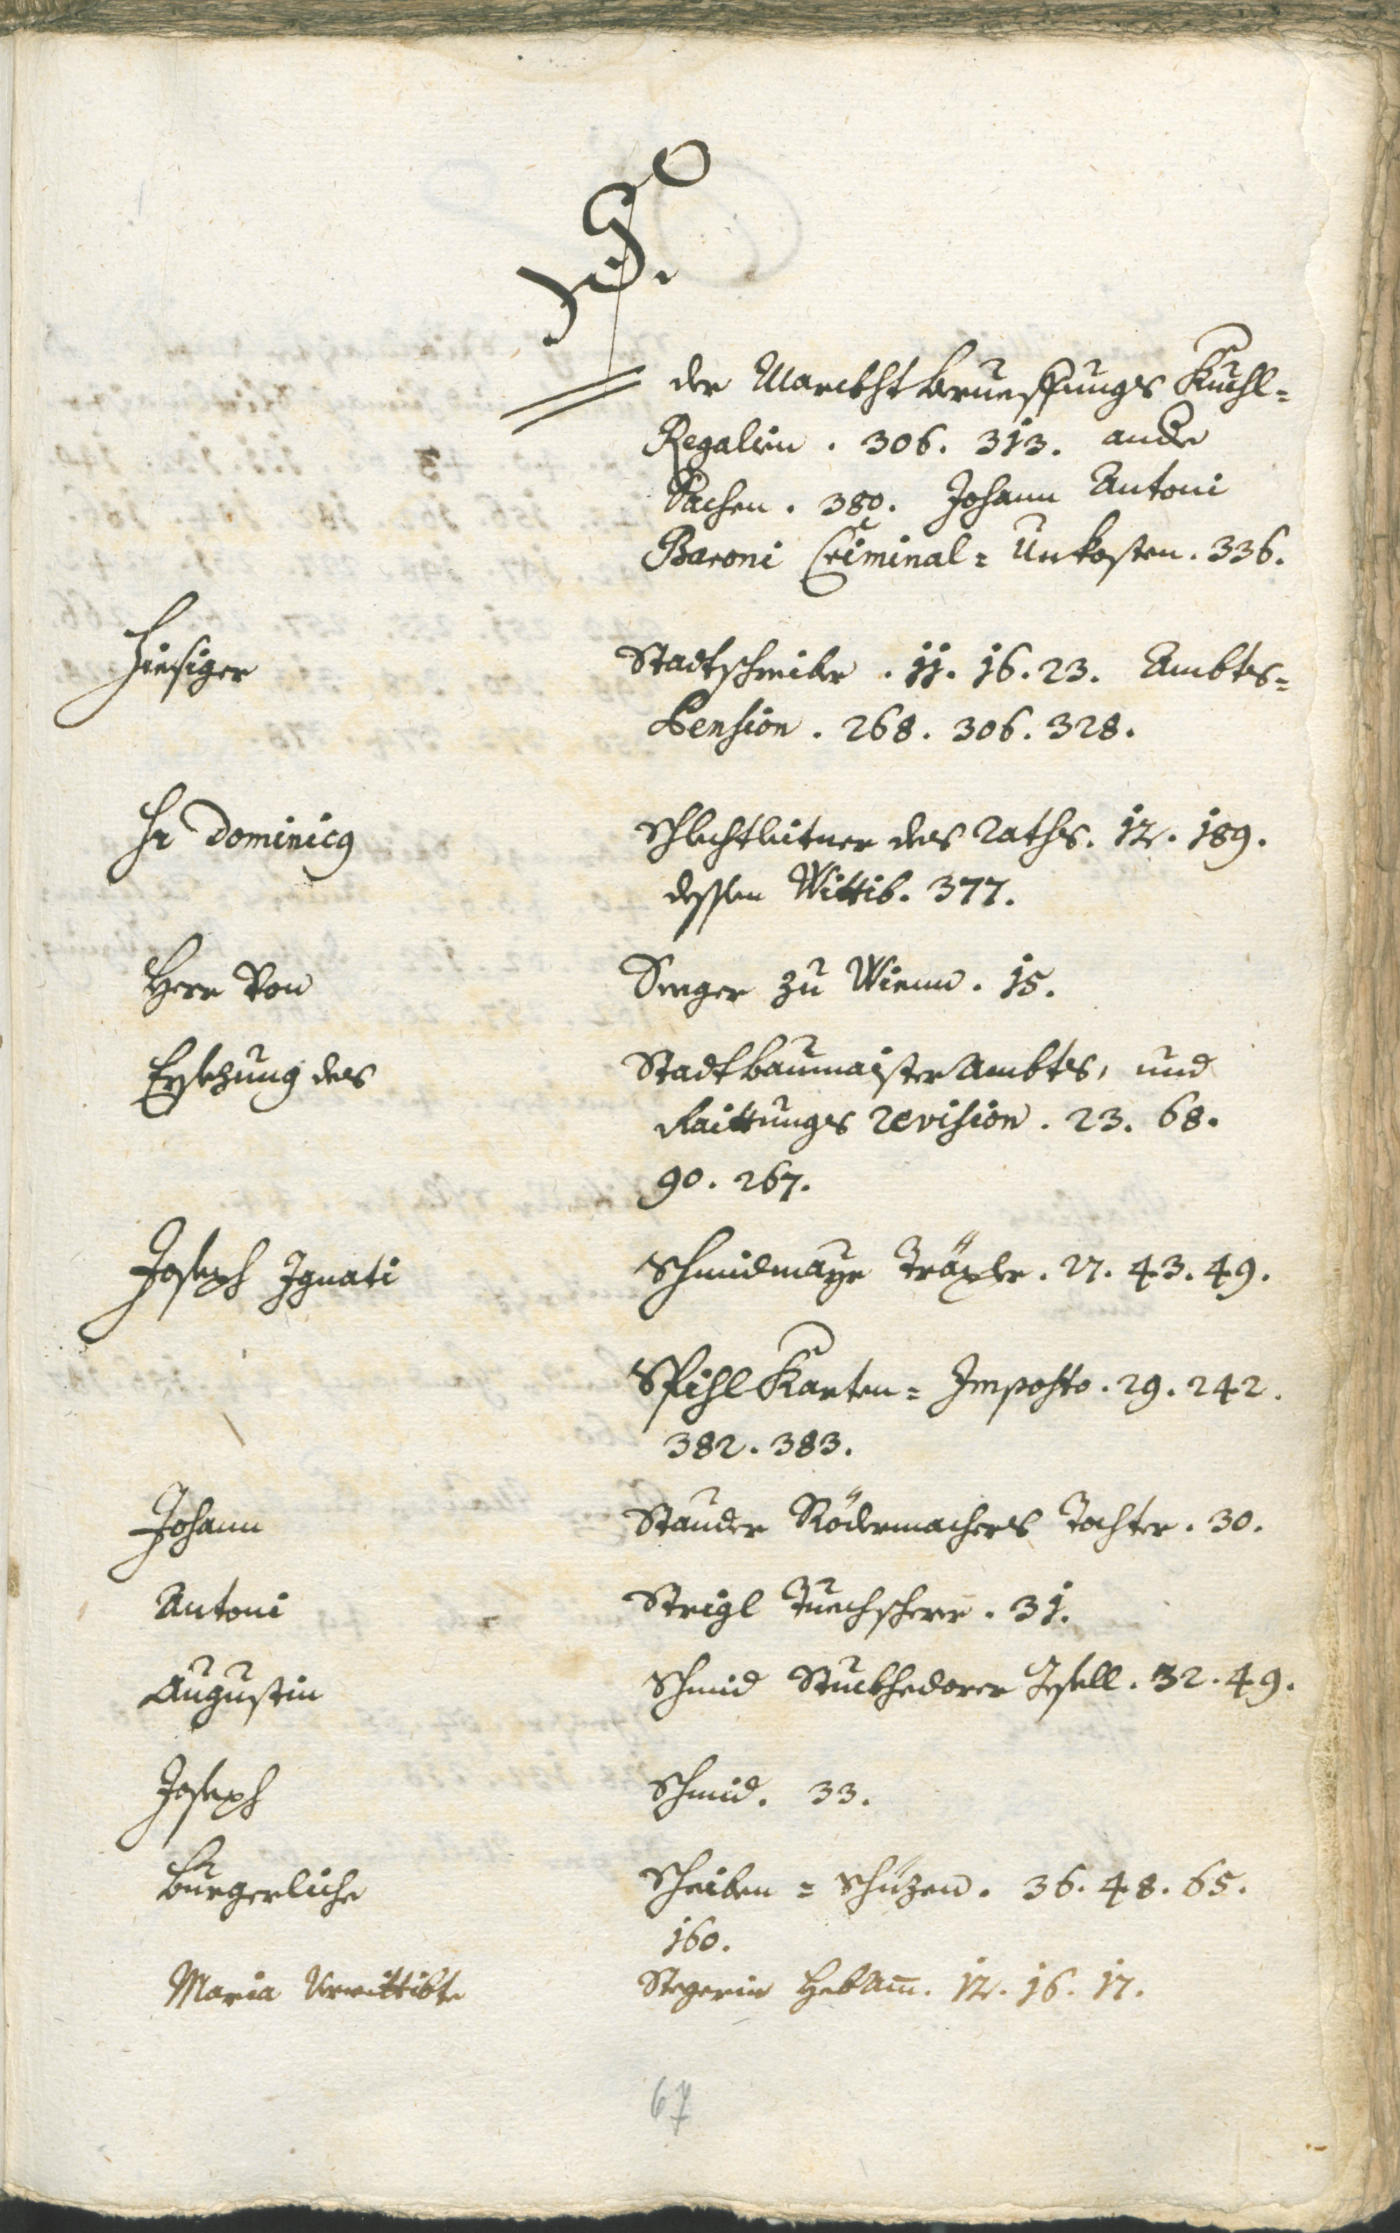 S.
der Marckht
Regalien . 306. 313. andere
Sachen . 380. Johann Antoni
Baroni Criminal = Unkosten . 336.
Hiesiger Stadtschreiber . 11. 16. 23. Ambts=
Pension . 268. 306. 328.
Hr Dominicus Schlechtleitner des Raths . 12. 189.
dessen Wittib . 377.
Herr Von Seeger zu Wienn . 15.
Ersetzung des Stadtbaumaister Ambts, und
Raittungs Revision . 23. 68.
90. 267.
Joseph Ignati Schmidmayr Träxler . 27. 43. 49.
Spihl Karten = Imposto . 29. 242.
382. 383.
Johann Stauder Rödermachers Tochter . 30.
Antoni Strigl Tuechscherer . 31.
Augustin Schmid Gesell . 32. 49.
Joseph Schmid . 33.
Burgerliche Scheiben = Schüzen . 36. 48. 65.
160.
Maria Verwittibte Stegerin Hebam̅ . 12. 16. 17.
67